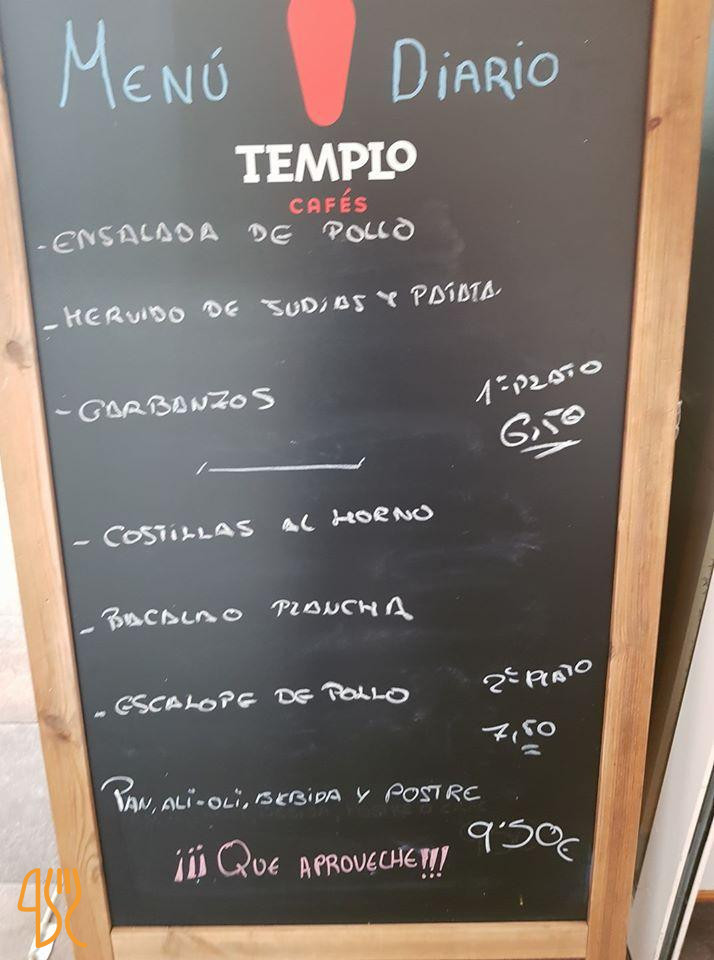 MENÚ DIARIO
TEMPLO
CAFÉS
- ENSALADA DE POLLO
- HERVIDO DE JUDIAS Y PATATA.
- GARBANZOS 1º PLATO
6,50
- COSTILLAS AL HORNO
- BACALAO PLANCHA
- ESCALOPE DE POLLO 2º PLATO
7,50
PAN, ALI-OLI, BEBIDA Y POSTRE
9'50€
¡¡¡ QUE APROVECHE!!!